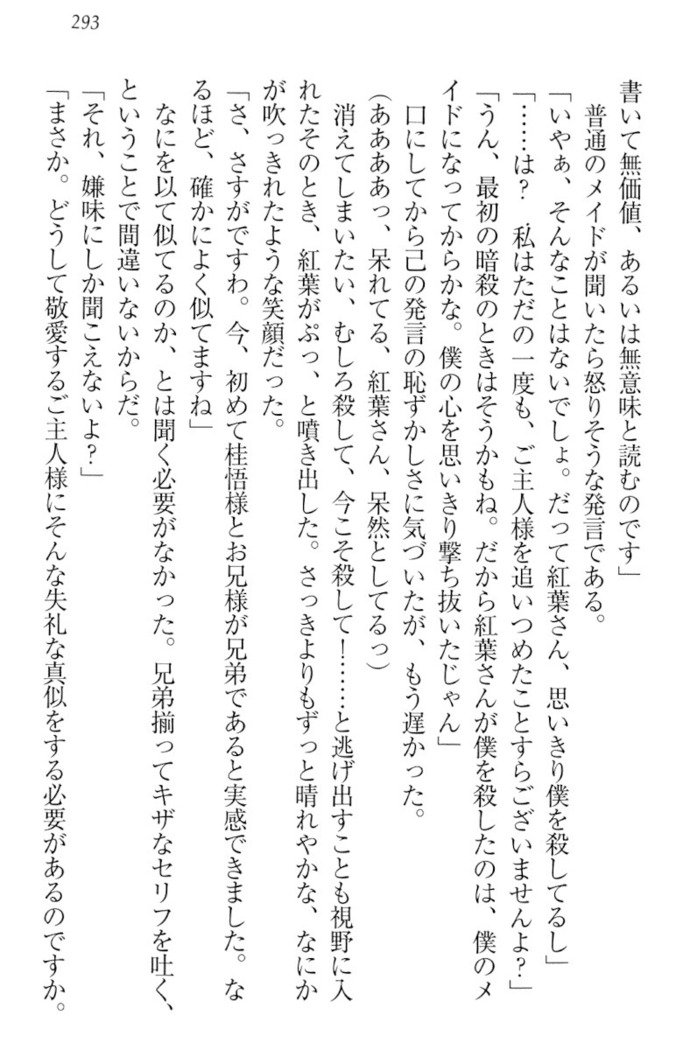 293
書いて無価値、あるいは無意味と読むのです」
　普通のメイドが聞いたら怒りそうな発言である。
「いやぁ、そんなことはないでしょ。だって紅葉さん、思いきり僕を殺してるし」
「……は？　私はただの一度も、ご主人様を追いつめたことすらございませんよ？」
「うん、最初の暗殺のときはそうかもね。だから紅葉さんが僕を殺したのは、僕のメ
イドになってからかな。僕の心を思いきり撃ち抜いたじゃん」
　口にしてから己の発言の恥ずかしさに気づいたが、もう遅かった。
（ああああっ、呆れてる、紅葉さん、呆然としてるっ）
　消えてしまいたい、むしろ殺して、今こそ殺して！……と逃げ出すことも視野に入
れたそのとき、紅葉がぷっ、と噴き出した。さっきよりもずっと晴れやかな、なにか
が吹っきれたような笑顔だった。
「さ、さすがですわ。今、初めて桂悟様とお兄様が兄弟であると実感できました。な
るほど、確かによく似てますね」
　なにを以て似てるのか、とは聞く必要がなかった。兄弟揃ってキザなセリフを吐く、
ということで間違いないからだ。
「それ、嫌味にしか聞こえないよ？」
「まさか。どうして敬愛するご主人様にそんな失礼な真似をする必要があるのですか。